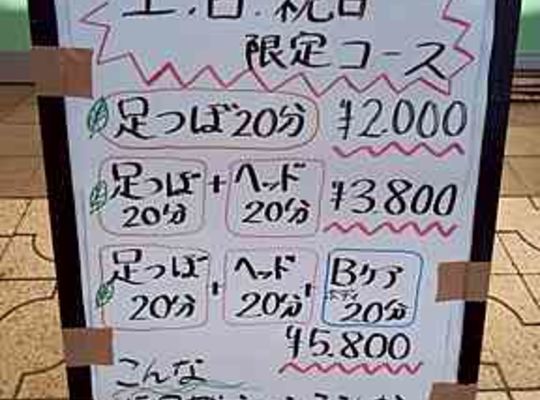 土.日.祝日
限定コース
足つぼ20分 ¥2.000
足つぼ20分 + ヘッド20分 ¥3.800
足つぼ20分 + ヘッド20分 + Bケア20分
ボディ
¥5.800
こんな